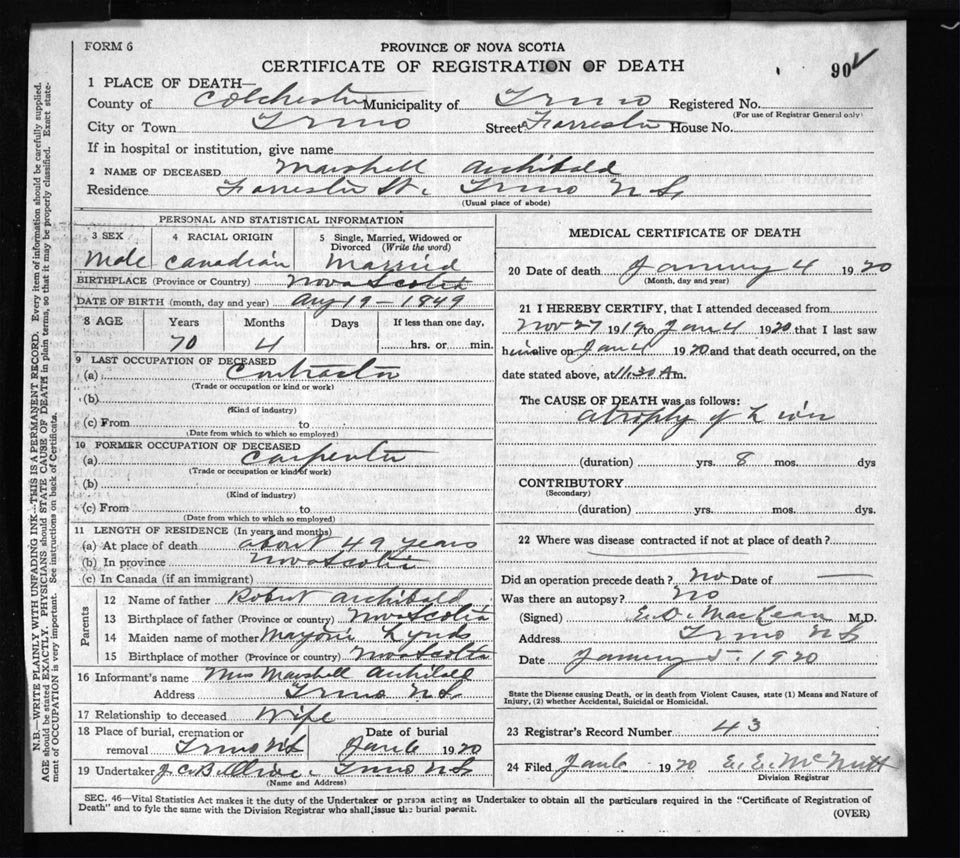 FORM 6
PROVINCE OF NOVA SCOTIA
CERTIFICATE OF REGISTRATION OF DEATH
90
1 PLACE OF DEATH—
County of Colchester Municipality of Truro Registered No.
(For use of Registrar General only)
City or Town Truro Street Forrester House No.
If in hospital or institution, give name
2 NAME OF DECEASED Marshell Archibald
Residence Forrester St. Truro N S.
(Usual place of abode)
PERSONAL AND STATISTICAL INFORMATION
3 SEX
Male
4 RACIAL ORIGIN
Canadian
5 Single, Married, Widowed or Divorced (Write the word)
Married
BIRTHPLACE (Province or Country) Nova Scotia
DATE OF BIRTH (month, day and year) Aug 19 - 1849
8 AGE Years Months Days If less than one day,
70 4 hrs. or min.
9 LAST OCCUPATION OF DECEASED
(a) Contractor
(Trade or occupation or kind or work)
(b)
(Kind of industry)
(c) From to
(Date from which to which so employed)
10 FORMER OCCUPATION OF DECEASED
(a) Carpenter
(Trade or occupation or kind of work)
(b)
(Kind of industry)
(c) From to
(Date from which to which so employed)
11 LENGTH OF RESIDENCE (In years and months)
(a) At place of death about 49 years
(b) In province Nova Scotia
(c) In Canada (if an immigrant)
Parents
12 Name of father Robert Archibald
13 Birthplace of father (Province or country) Nova Scotia
14 Maiden name of mother Marjorie Lynds
15 Birthplace of mother (Province or country) Nova Scotia
16 Informant's name Mrs Marshell Archibald
Address Truro N S.
17 Relationship to deceased Wife
18 Place of burial, cremation or removal Truro N S
Date of burial
Jan 6 1920
19 Undertaker Truro N S.
(Name and Address)
MEDICAL CERTIFICATE OF DEATH
20 Date of death January 4 1920
(Month, day and year)
21 I HEREBY CERTIFY, that I attended deceased from
Nov 27 1919 to Jan 4 1920 that I last saw
him alive on Jan 4 1920 and that death occurred, on the
date stated above, at 11.30 A m.
The CAUSE OF DEATH was as follows:
Atrophy of Liver
(duration) yrs. 8 mos. dys
CONTRIBUTORY
(Secondary)
(duration) yrs. mos. dys.
22 Where was disease contracted if not at place of death?
Did an operation precede death? No Date of —
Was there an autopsy? No
(Signed) E. D. MacLean M.D.
Address Truro N S
Date January 5. 1920
State the Disease causing Death, or in death from Violent Causes, state (1) Means and Nature of
Injury, (2) whether Accidental, Suicidal or Homicidal.
23 Registrar's Record Number 43
24 Filed Jan 6 1920 E. E. McNutt
Division Registrar
SEC. 46—Vital Statistics Act makes it the duty of the Undertaker or person acting as Undertaker to obtain all the particulars required in the "Certificate of Registration of
Death" and to fyle the same with the Division Registrar who shall issue the burial permit.
(OVER)
N.B.—WRITE PLAINLY WITH UNFADING INK—THIS IS A PERMANENT RECORD. Every item of information should be carefully supplied.
AGE should be stated EXACTLY. PHYSICIANS should STATE CAUSE OF DEATH in plain terms, so that it may be properly classified. Exact state-
ment of OCCUPATION is very important. See instructions on back of Certificate.